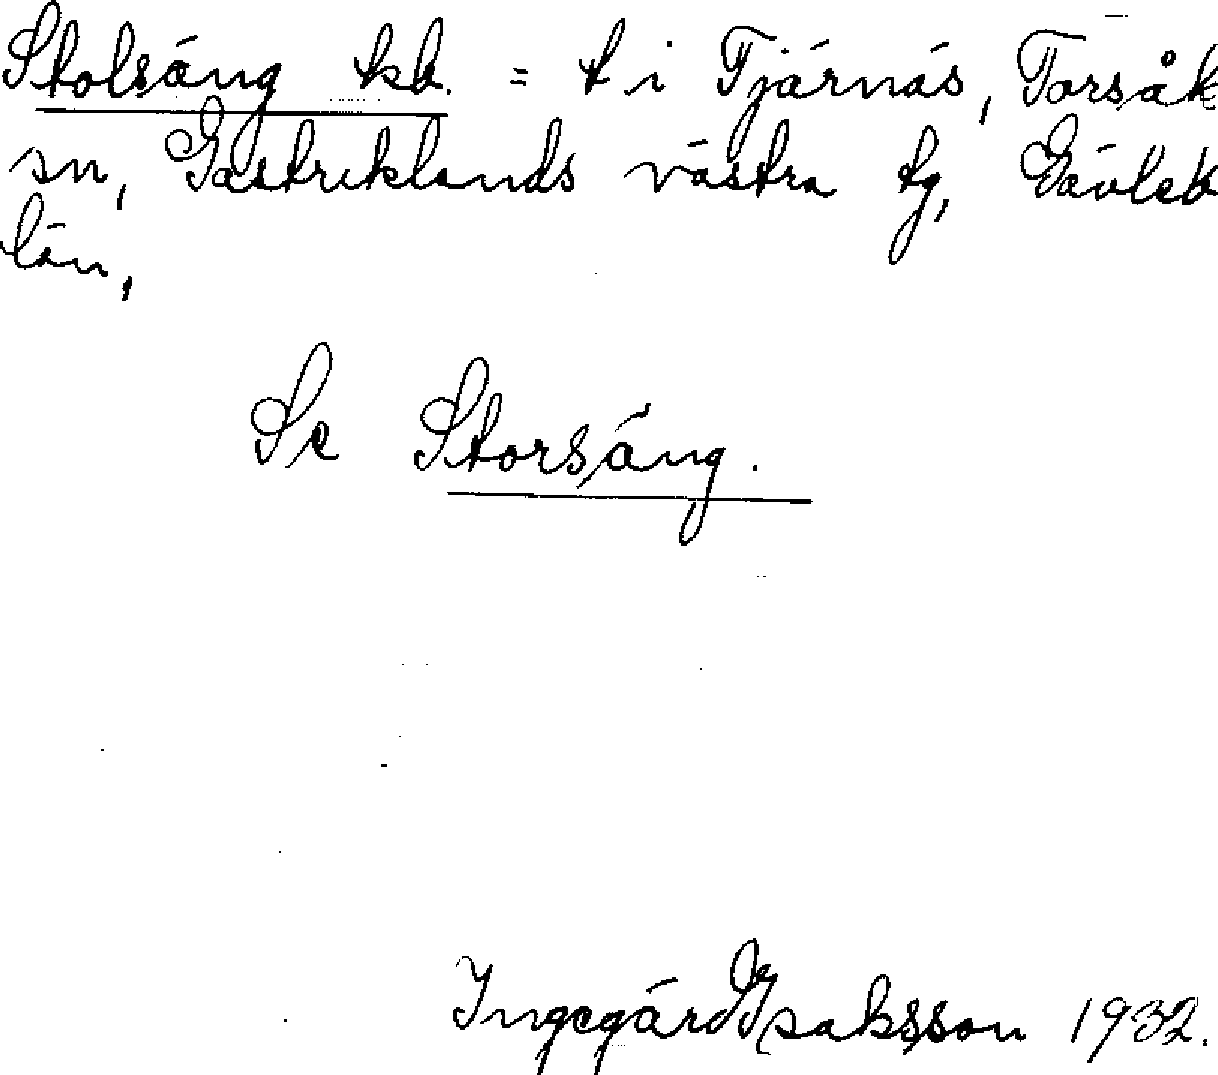 Stolsäng kb. = t. i Tjärnäs, Torsåk
sn, Gästriklands västra tg, Gävleb
län,
Se Storsäng.
Ingegärd Isaksson 1932.